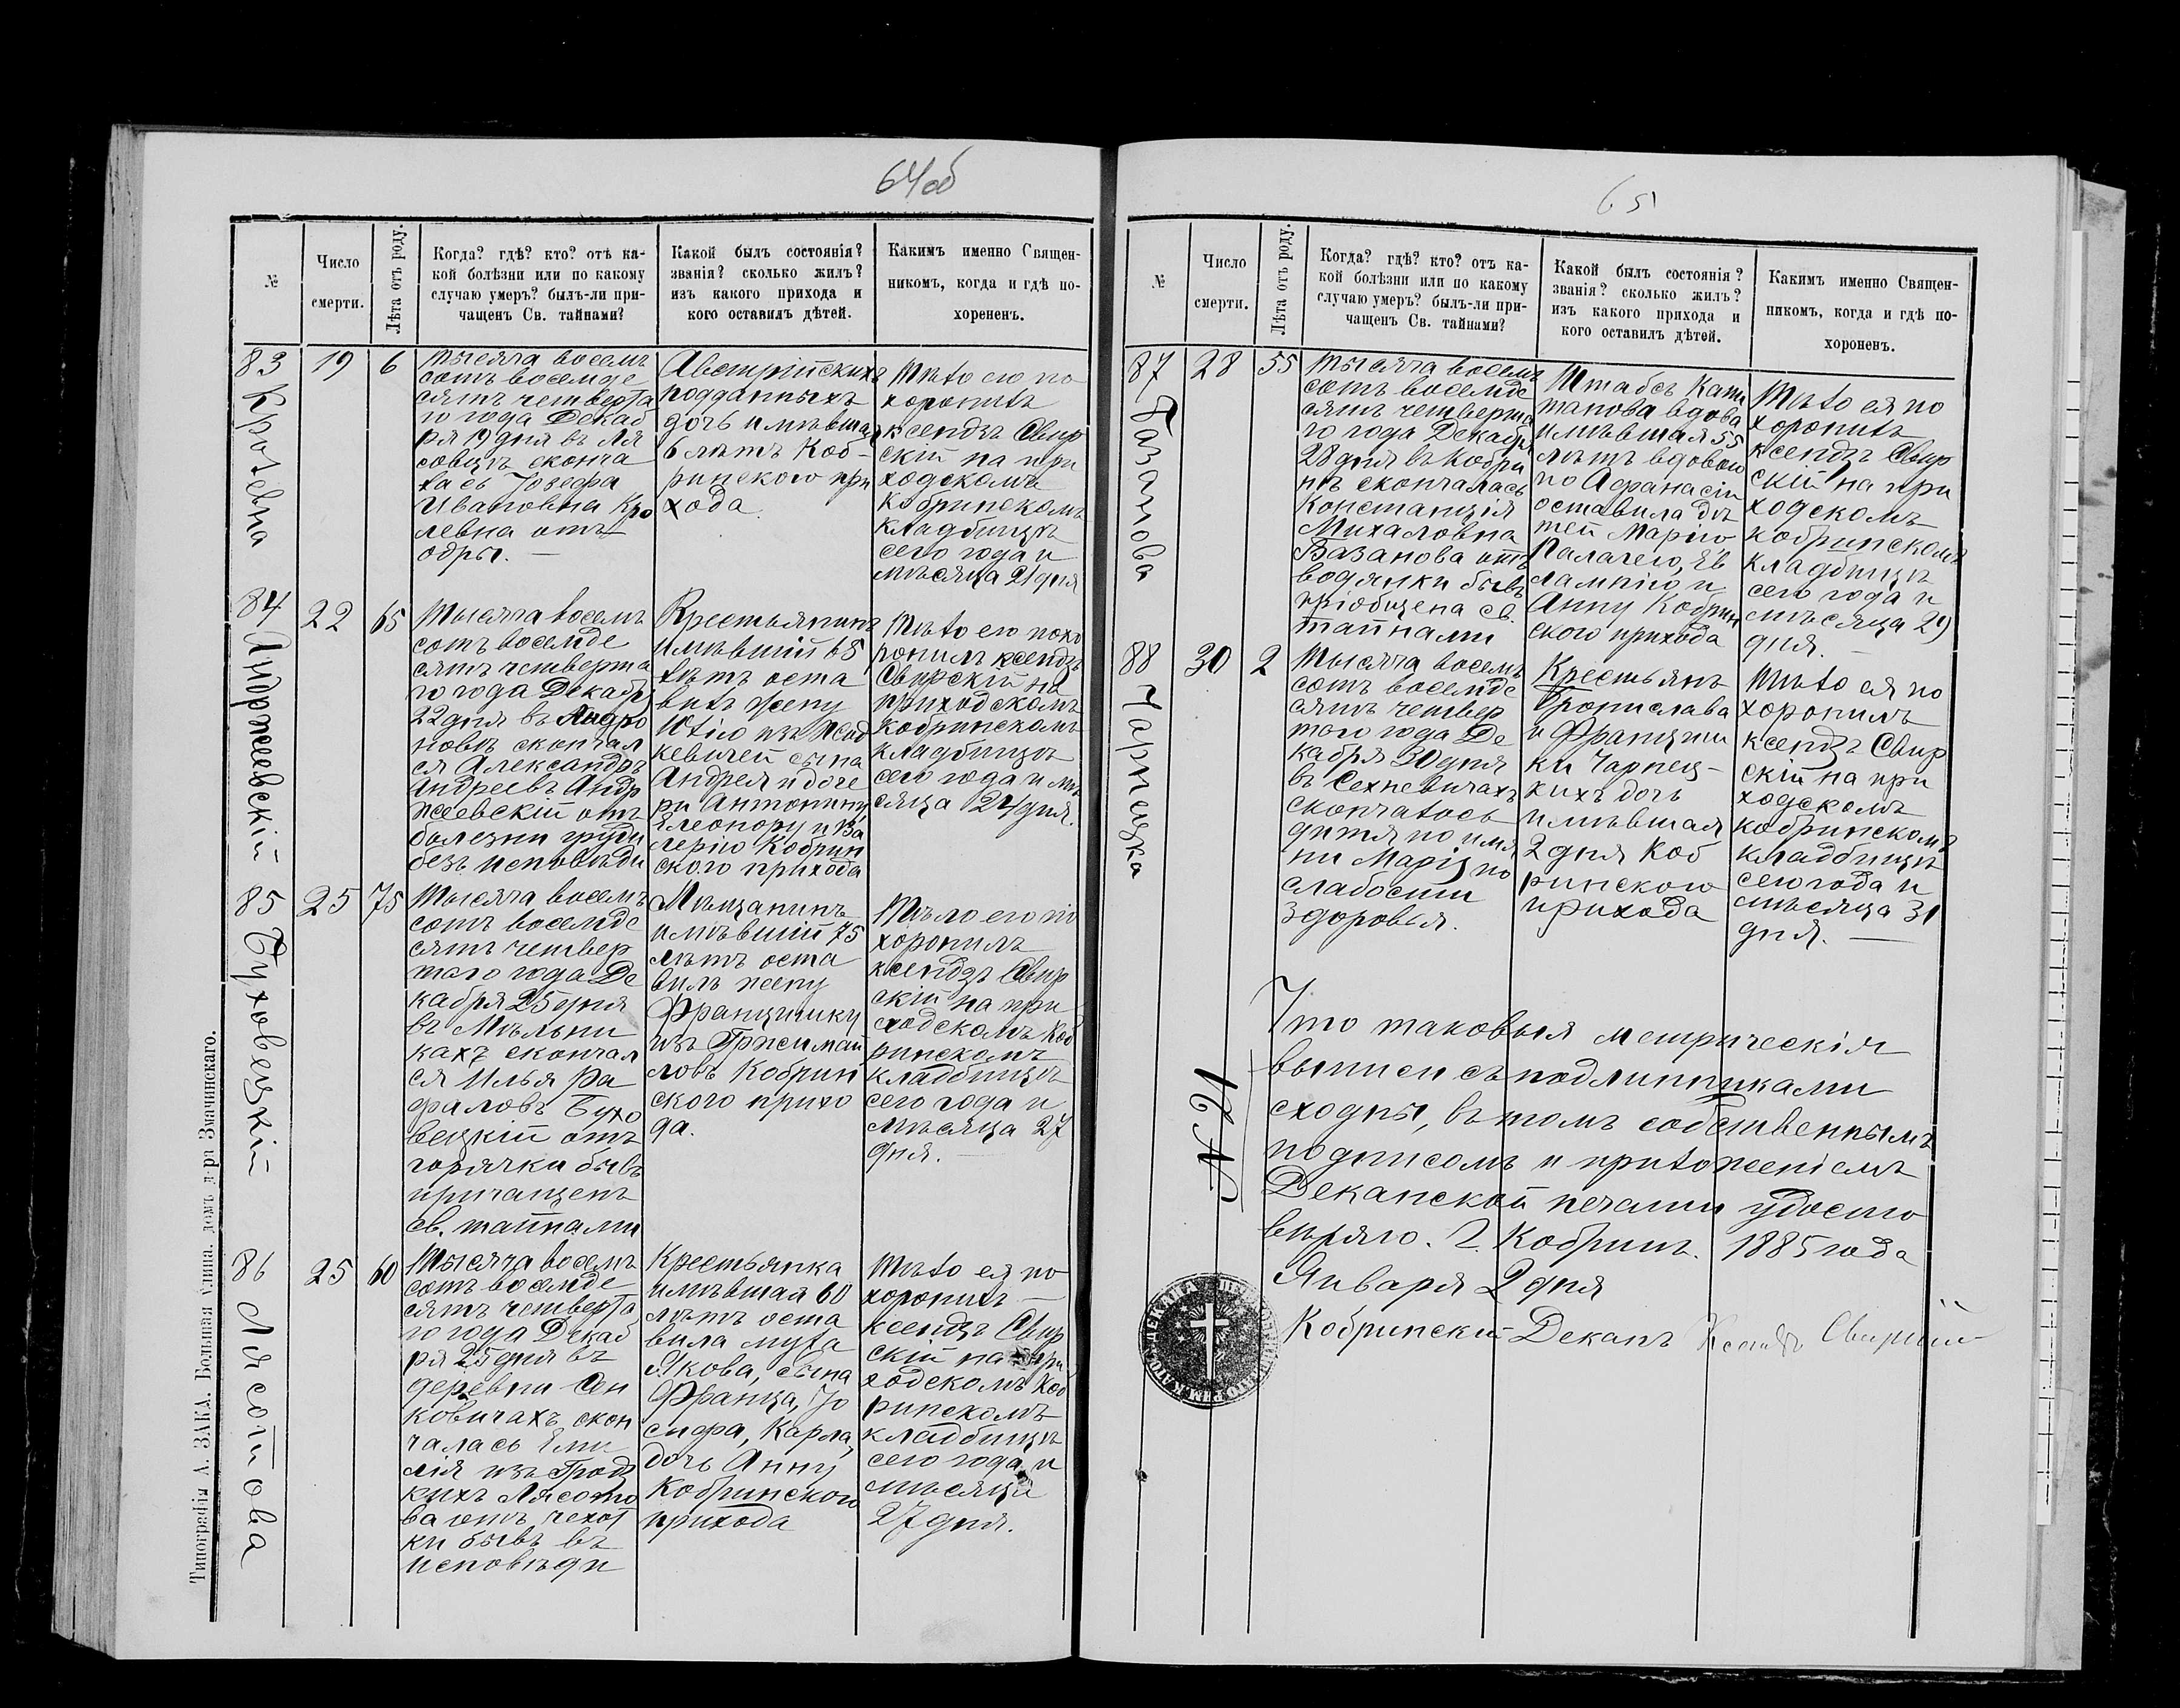 64об
№
Число
смерти.
Лѣта отъ роду.
Когда? гдѣ? кто? отъ ка-
кой болѣзни или по какому
случаю умеръ? былъ-ли при-
чащенъ Св. тайнами?
Какой былъ состоянія?
званія? сколько жилъ?
изъ какого прихода и
кого оставилъ дѣтей.
Какимъ именно Священ-
никомъ, когда и гдѣ по-
хороненъ.
83
Кролевна
19
6
Тысяча восемь
сотъ восемде
сятъ четверта
го года Декаб
ря 19 дня въ Ля
совцъ сконча
лась Іозефа
Ивановна Кро
левна отъ
одры. —
Австрійскихъ
подданныхъ
дочь имѣвшая
6 лѣтъ Коб-
ринского при
хода.
Тѣло ею по
хоронилъ
ксендзъ Свир
скій на при
ходскомъ
Кобринскомъ
кладбищѣ
сего года и
мѣсяца 21 дня
84
Андржеевскій
22
65
Тысяча восемь
сотъ восемде
сятъ четверта
го года Декабр
22 дня въ Андро
новѣ скончал
ся Александръ
Андреевъ Андр
жеевскій отъ
болезни груди
безъ исповѣди
Крестьянинъ
имѣвшій 65
лѣтъ оста
вилъ жену
Юлію изъ
кевичей сына
Андрея и доче
ри Антонину,
Елеонору и Ва
лерію Кобрин
ского прихода
Тѣло его похо
ронилъ ксендзъ
Свирскій на
приходскомъ
Кобринскомъ
кладбищѣ
сего года и мѣ
сяца 24 дня.
85
Буховецкій
25
75
Тысяча восемь
сотъ восемде
сятъ четвер
таго года Де
кабря 25 дня
въ Мѣльни
кахъ скончал
ся Илья Ра
фаловъ Бухо
вецкій отъ
горячки бывъ
причащенъ
св. тайнами
Мѣщанинъ
имѣвшій 75
лѣтъ оста
вилъ жену
Францишку
изъ Гржимай
ловъ Кобрин
ского прихо
да.
Тѣло его по
хоронилъ
ксендзъ Свир
скій на при
ходскомъ Коб
ринскомъ
кладбищѣ
сего года и
мѣсяца 27
дня. —
86
Лясотова
25
60
Тысяча восемь
сотъ восемде
сятъ четверта
го года Декаб
ря 25 дня въ
деревни Сен
ковичахъ скон
чалась Еми
лія изъ Грод
кихъ Лясото
ва отъ чехот
ки бывъ въ
исповѣди
Крестьянка
имѣвшая 60
лѣтъ оста
вила мужа
Якова, сына
Франца, Іо
сифа, Карла,
дочь Анну
Кобринского
прихода
Тѣло ея по
хоронилъ —
ксендзъ Свир
скій на при
ходскомъ Коб
ринскомъ
кладбищѣ
сего года и
мѣсяца
27 дня.
Типографія А. ЗАКА. Большая улица. домъ д-ра Змачинскаго.
65
№
Число
смерти.
Лѣта отъ роду.
Когда? гдѣ? кто? отъ ка-
кой болѣзни или по какому
случаю умеръ? былъ-ли при-
чащенъ Св. тайнами?
Какой былъ состоянія?
званія? сколько жилъ?
изъ какого прихода и
кого оставилъ дѣтей.
Какимъ именно Священ-
никомъ, когда и гдѣ по-
хороненъ.
87
Базанова
28
55
Тысяча восемь
сотъ восемде
сятъ четверта
го года Декабр
28 дня въ Кобри
нѣ скончалась
Констанція
Михаловна
Базанова отъ
водянки бывъ
пріобщена св.
тайнами
Штабсъ Капи
танова вдова
имѣвшая 55
лѣтъ вдовою
по Афанасіи
оставила дѣ
тей Марію
Палагею, Ев
лампію и
Анну Кобрин
ского прихода
Тѣло ея по
хоронилъ
ксендзъ Свир
скій на при
ходскомъ
кобринскомъ
кладбищѣ
сего года и
мѣсяца 29
дня. —
88
Чарнецка
30
2
Тысяча восемь
сотъ восемде
сятъ четвер
таго года Де
кабря 30 дня
въ Сехневичахъ
скончалось
дитя, по име
ни Марія по
слабости
здоровья.
Крестьянъ
Бронислава
и Францишк
ки Чарнец-
кихъ дочь
имѣвшая
2 дня Коб
ринского
прихода
Тѣло ея по
хоронилъ
ксендзъ Свир
скій на при
ходскомъ
кобринскомъ
кладбищѣ
сего года и
мѣсяца 31
дня. —
Что таковыя метрическія
выписи съ подлинниками
сходны, въ томъ собственнымъ
подписомъ и приложеніемъ
Деканской печати удосто
вѣряю. Г. Кобринъ. 1885 года
Января 2 дня
Кобринскій Деканъ Ксендзъ Свирскій
№ 21